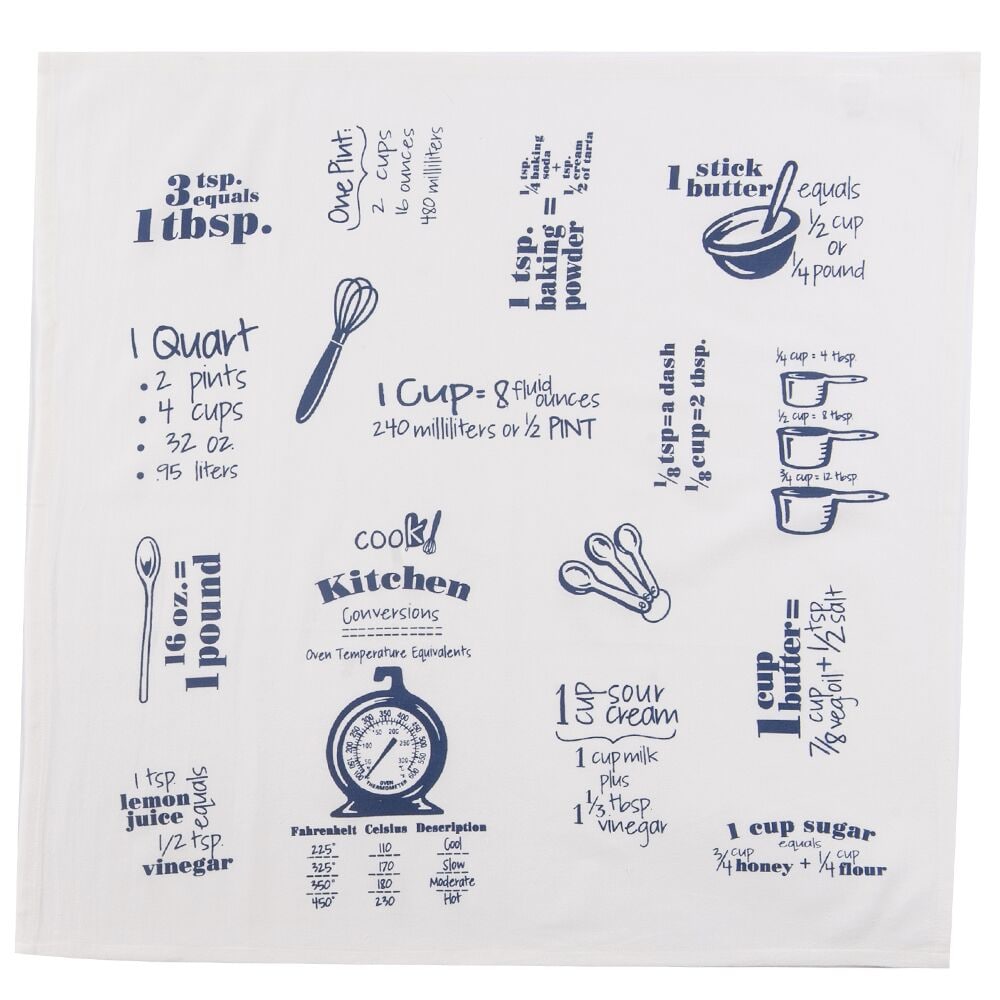 3 tsp.
equals
1 tbsp.
One Pint:
2 cups
16 ounces
480 milliliters
1 tsp.
baking
powder
=
1 tsp.
1/4 baking
soda
+
1 tsp.
1/2 cream
of tarta
1 stick
butter
equals
1/2 cup
or
1/4 pound
1 Quart
• 2 pints
• 4 cups
• 32 oz.
• .95 liters
1 Cup = 8 fluid
ounces
240 milliliters or 1/2 PINT
1/8 tsp=a dash
1/8 cup=2 tbsp.
1/4 cup = 4 tbsp
1/2 cup = 8 tbsp
3/4 cup = 12 tbsp
16 oz.=
1 pound
COOK
Kitchen
Conversions
Oven Temperature Equivalents
50 100 150 200 250 300
100 150 200 250 300 350 400 450 500 550 600
°C
°F
OVEN
THERMOMETER
Fahrenheit Celsius Description
225° 110 Cool
325° 170 Slow
350° 180 Moderate
450° 230 Hot
1 cup
butter=
7/8 cup veg oil + 1/2 tsp salt
1 cup sour
cream
1 cup milk
plus
1 1/3 tbsp.
vinegar
1 tsp.
lemon
juice
equals
1/2 tsp.
vinegar
1 cup sugar
equals
3/4 cup honey + 1/4 cup flour